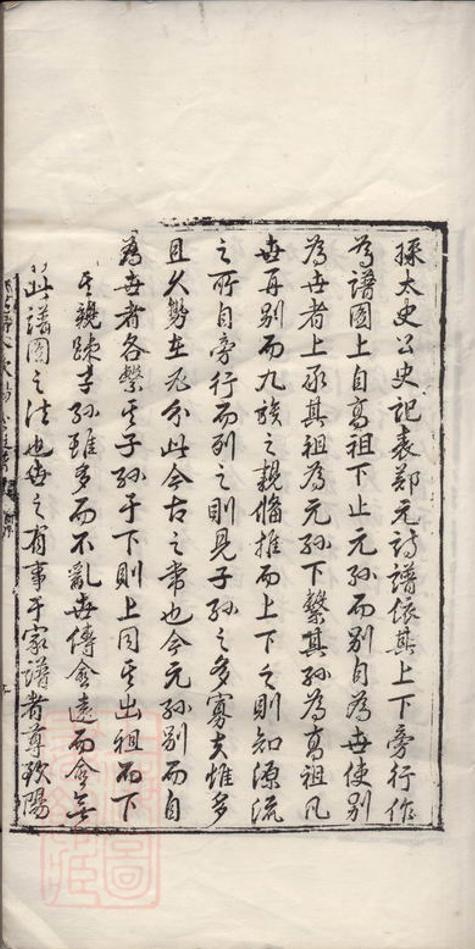 採太史公史記表鄭元詩譜依其上下旁行作
為譜圖上自高祖下止元孫而别自為世使别
為世者上承其祖為元孫下繫其孫為高祖凡
世再别而九族之親備推而上下之則知源流
之所自旁行而列之則見子孫之多寡夫惟多
且久勢在必分此今古之常也今元孫别而自
為世者各繫其子孫于下則上同其出祖而下
其親疎子孫雖多而不亂世傳愈遠而愈無
此譜圖之法也世之有事于家譜者尊歐陽